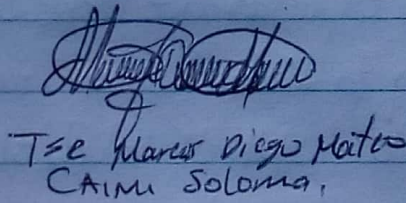 Tse Marcos Diego Mateo
CAIMI Soloma.